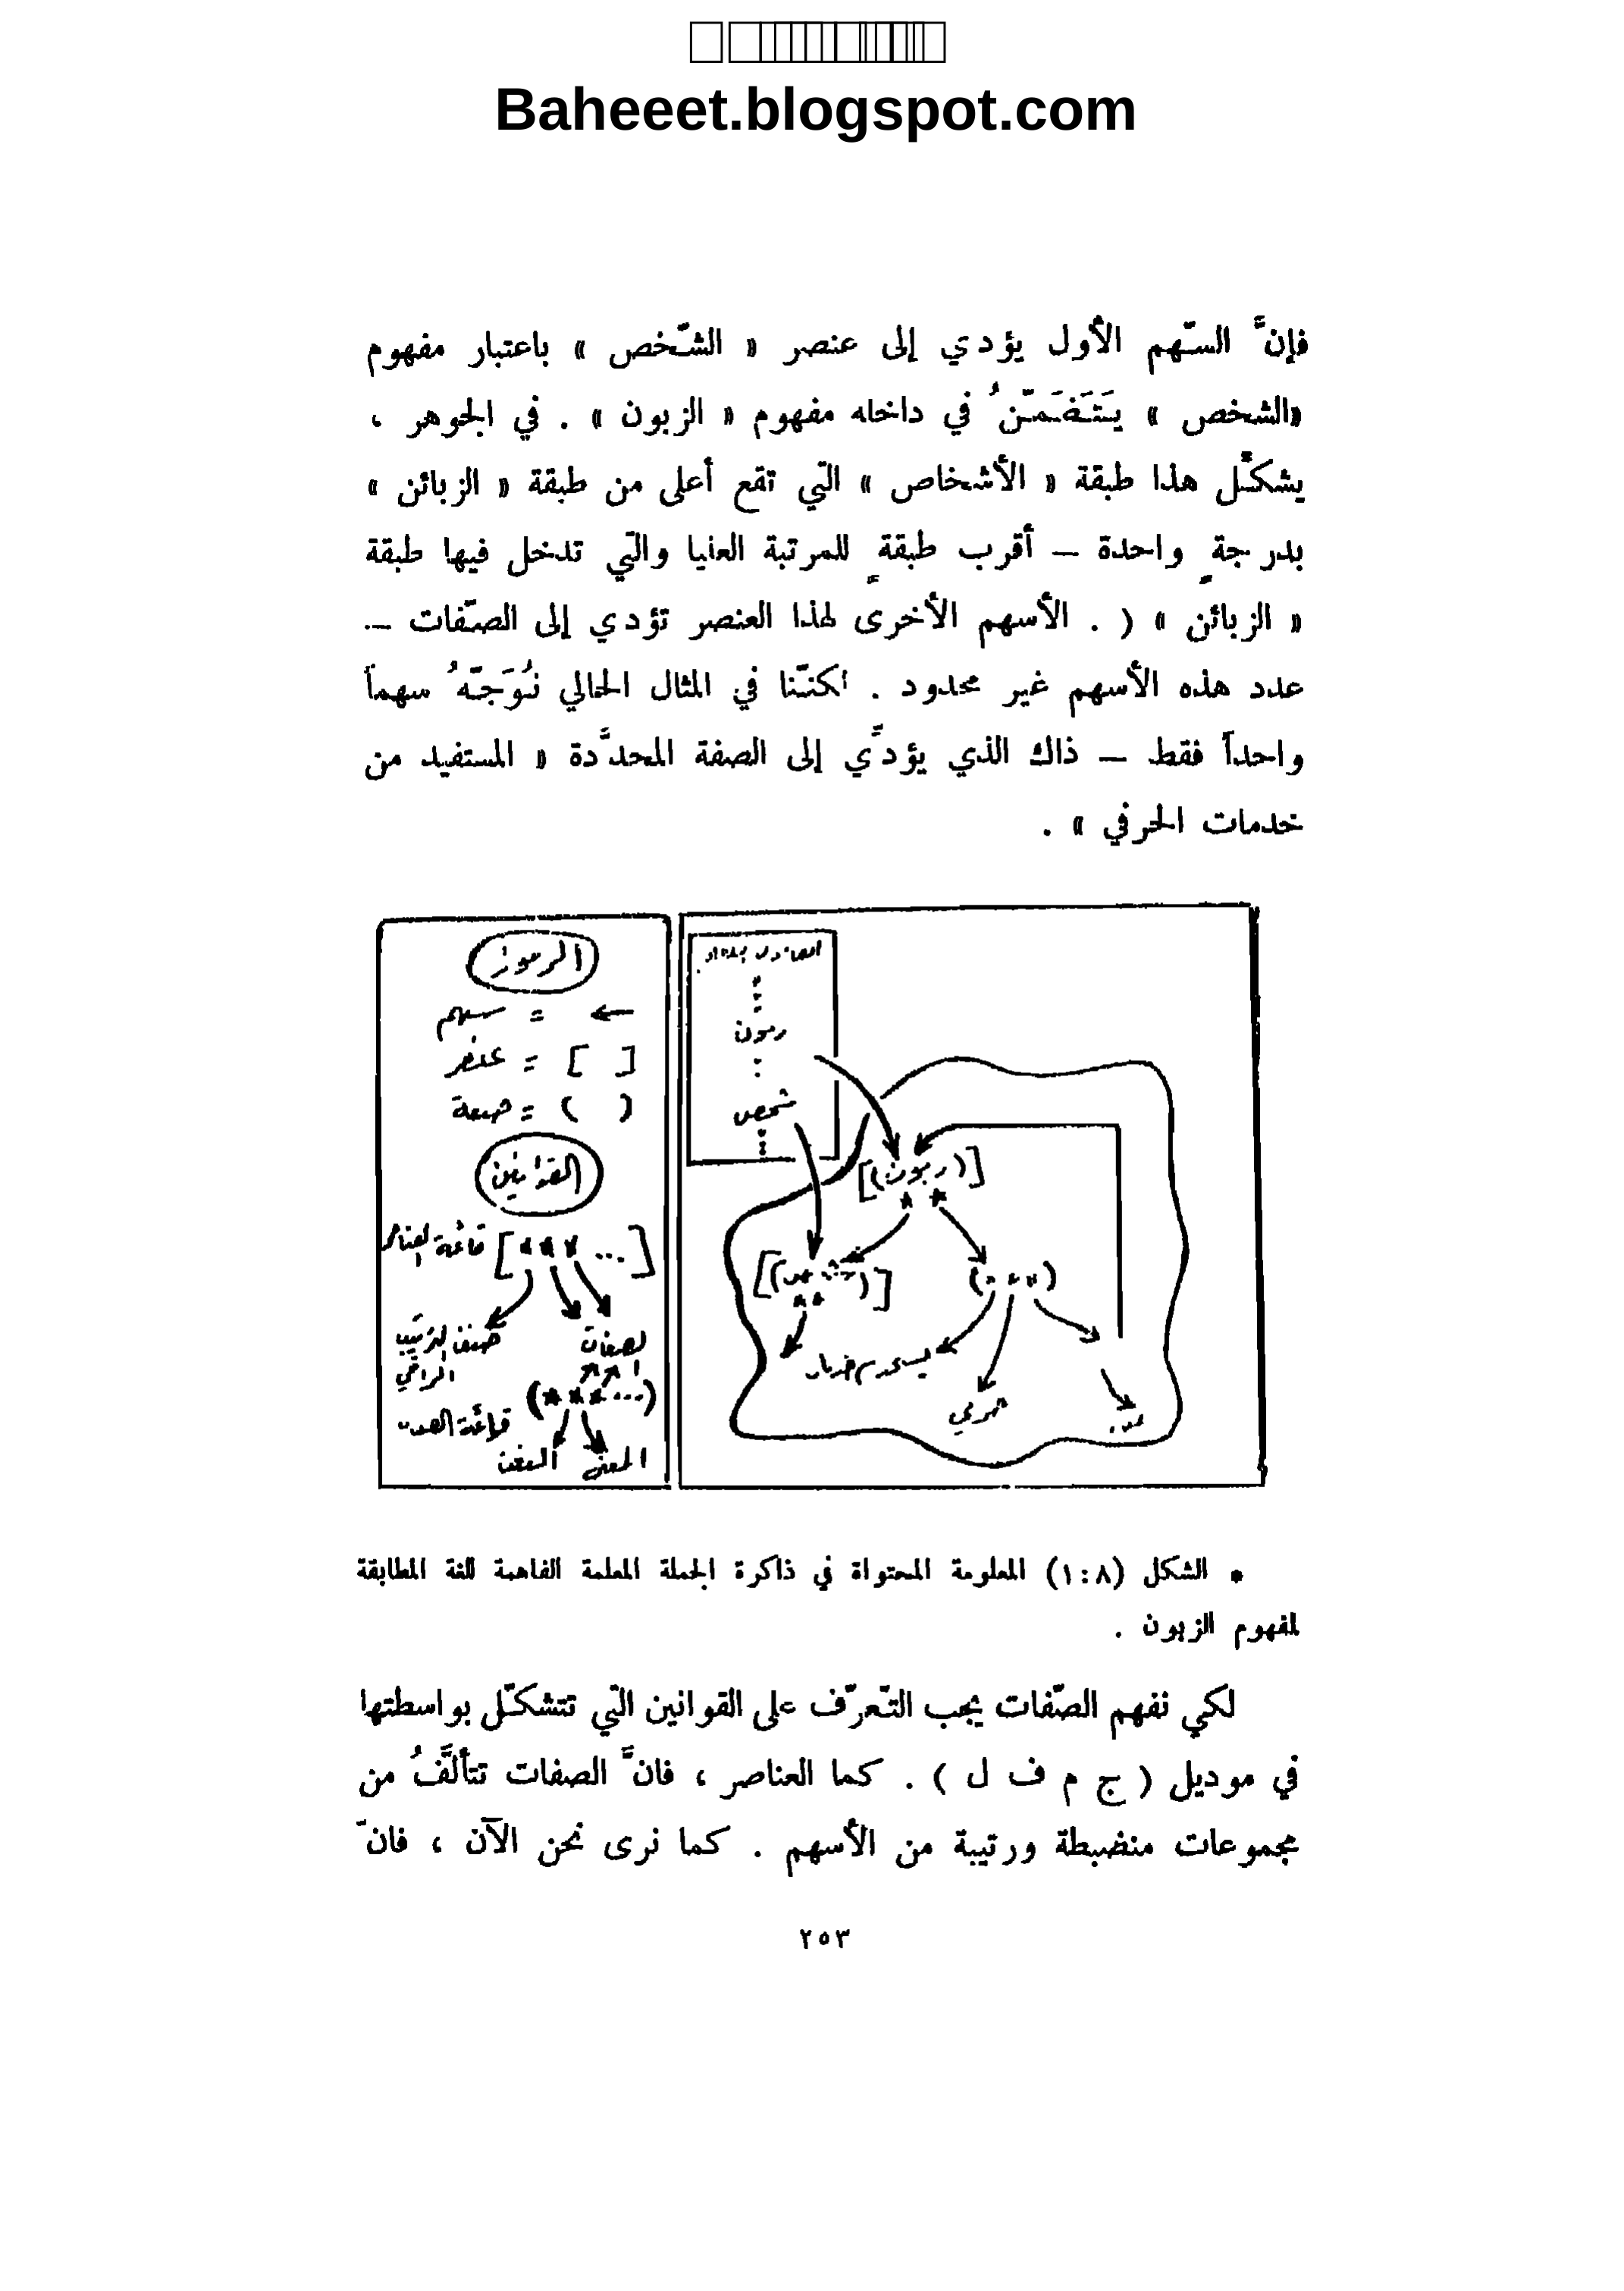 Baheeet.blogspot.com
فإنَّ السّهم الأول يؤدي إلى عنصر « الشّخص » باعتبار مفهوم
«الشخص » يَتَضَمّنُ في داخله مفهوم « الزبون » . في الجوهر ،
يشكّل هذا طبقة « الأشخاص » التي تقع أعلى من طبقة « الزبائن »
بدرجةٍ واحدة – أقرب طبقةٍ للمرتبة العليا والتي تدخل فيها طبقة
« الزبائن » ( . الأسهم الأخرى لهذا العنصر تؤدي إلى الصّفات –
عدد هذه الأسهم غير محدود . لكنّنا في المثال الحالي نُوَجّهُ سهماً
واحداً فقط – ذاك الذي يؤدّي إلى الصفة المحدَّدة « المستفيد من
خدمات الحرفي » .
الرموز
← = سهم
[ ] = عنصر
( ) = صفة
القوانين
[... * * *] قائمة العناصر
الصفات
(...* * *)
المعنى
زبون
شخص
[(زبون)]
* *
(* * *)
* الشكل (٨:١) المعلومة المحتواة في ذاكرة الجملة المعلمة الفاهمة للغة المطابقة
لمفهوم الزبون .
لكي نفهم الصّفات يجب التّعرّف على القوانين التي تتشكّل بواسطتها
في موديل ( ج م ف ل ) . كما العناصر ، فانَّ الصفات تتألَّفُ من
مجموعات منضبطة ورتيبة من الأسهم . كما نرى نحن الآن ، فانّ
٢٥٣